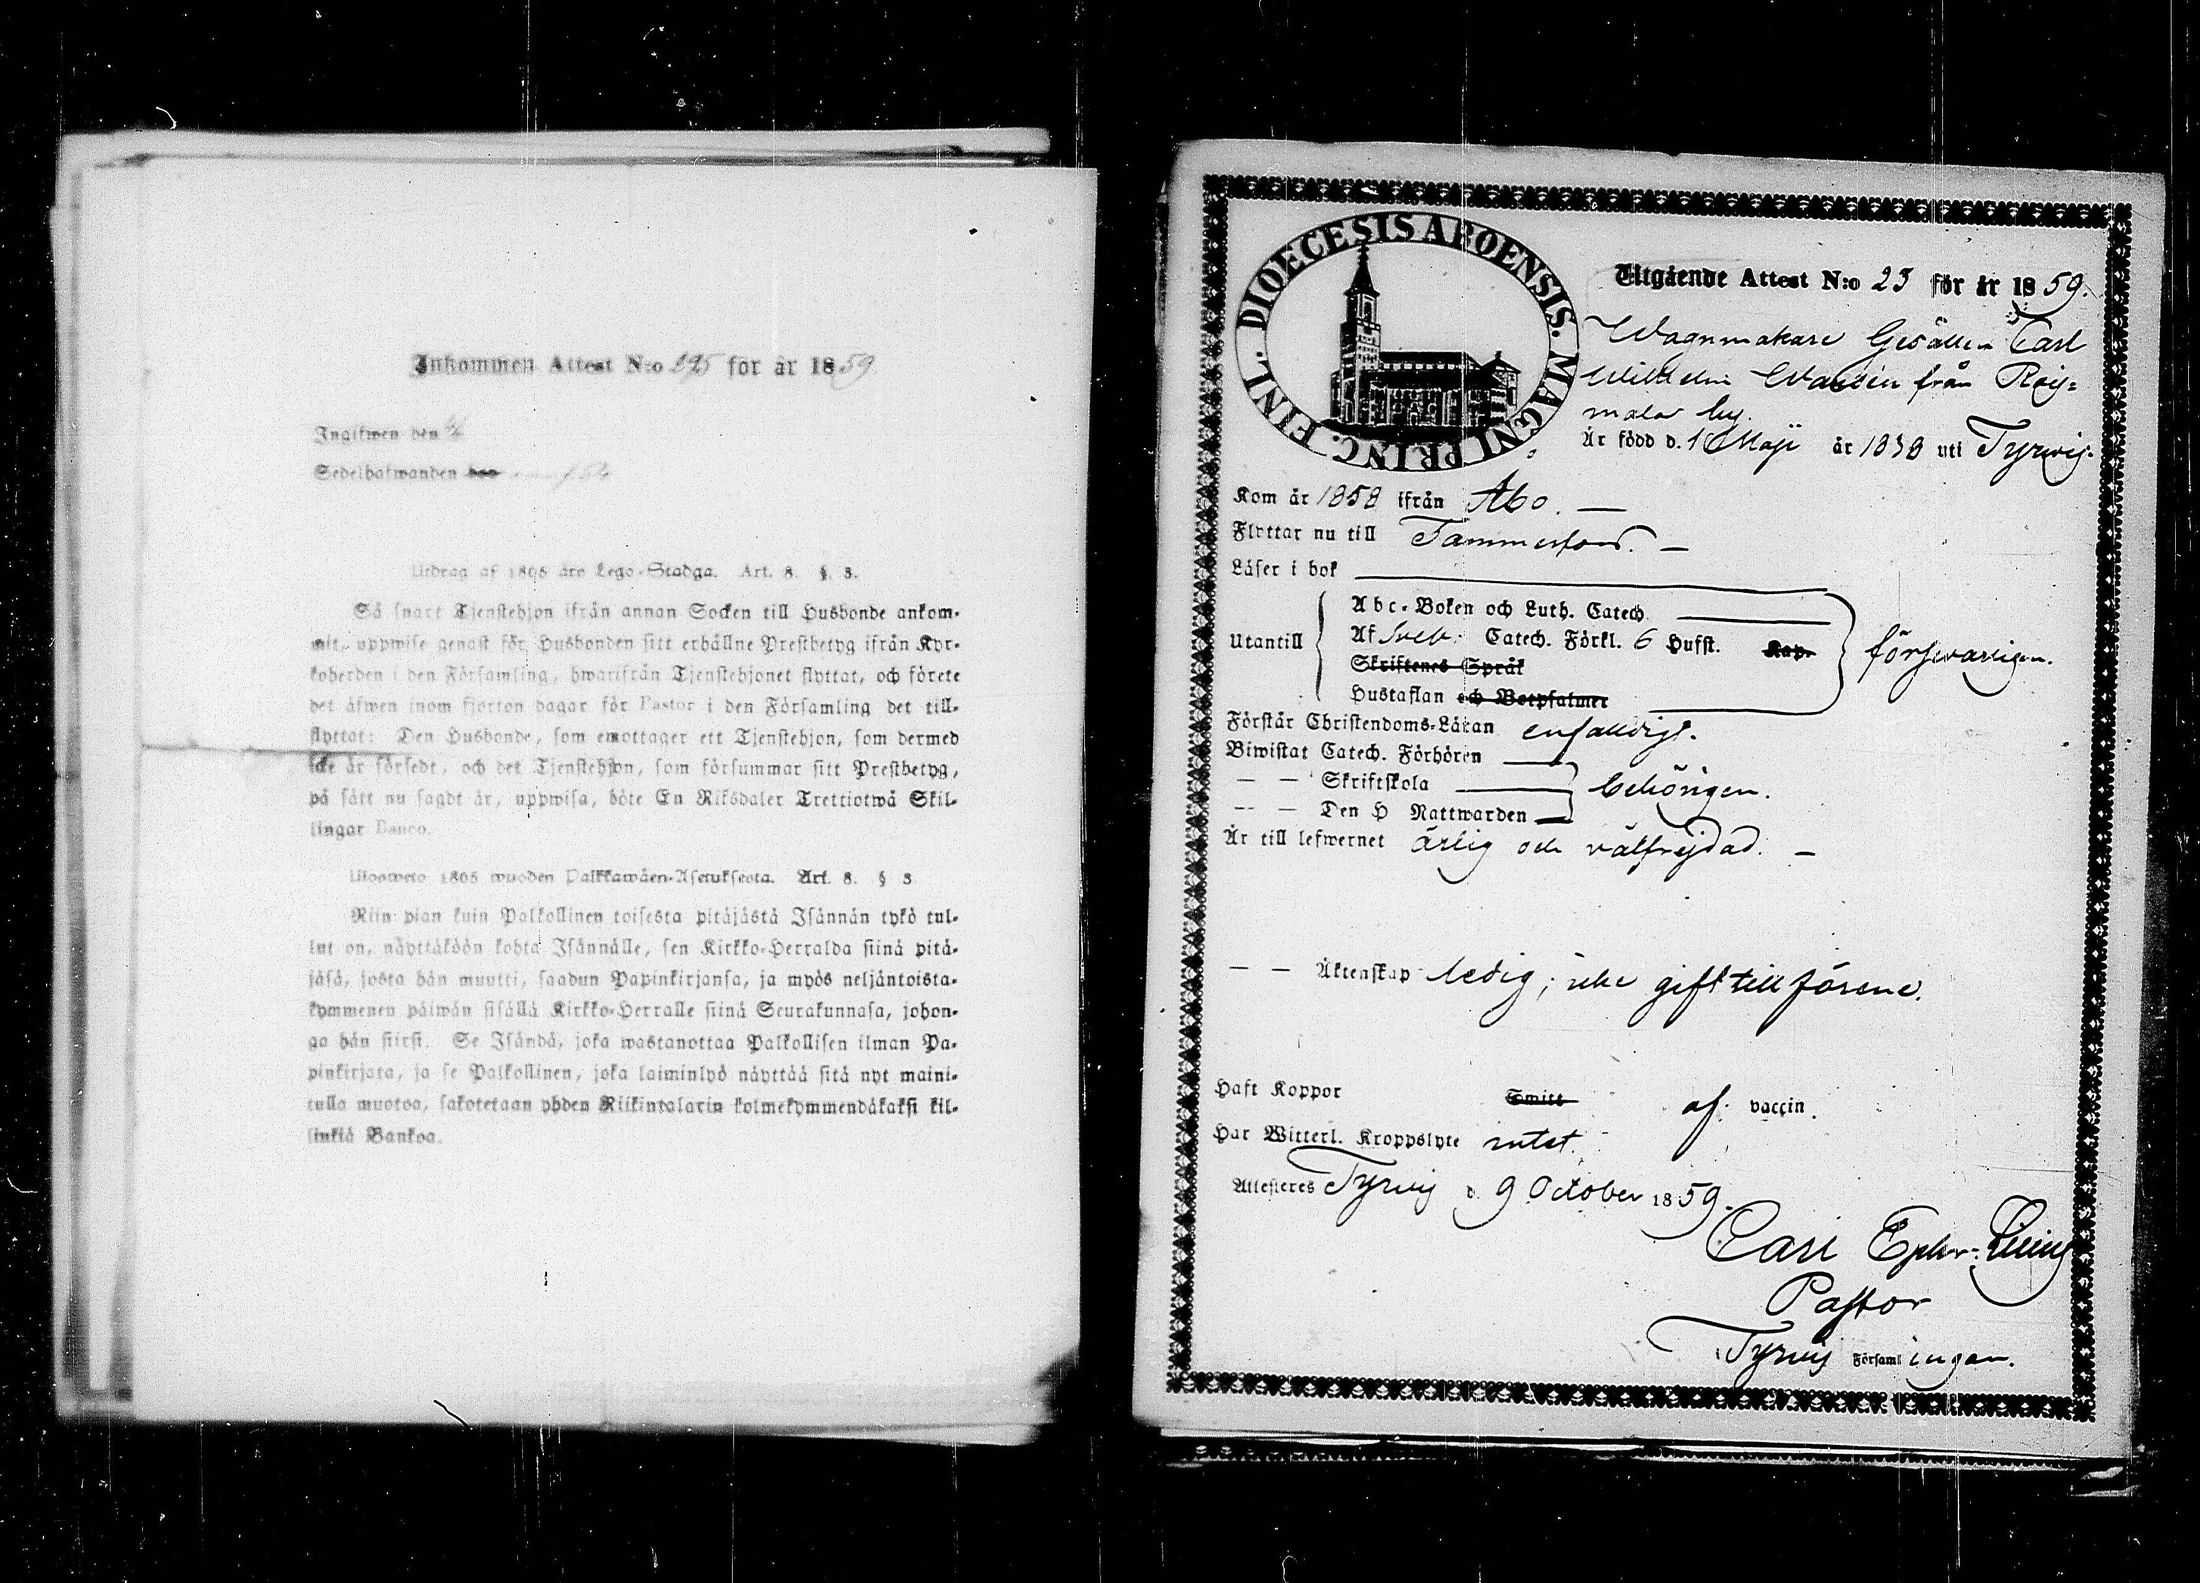 Inkommen Attest N:o 295 för år 1859
Ingifwen den
Sedelhafwanden
Utdrag af 1805 års Lego-Stadga. Art. 8. §. 3.
Så snart Tjenstehjon ifrån annan Socken till Husbonde ankom-
mit, uppwise genast för Husbonden sitt erhållne Prestbetyg ifrån Kyr-
koherden i den Församling, hwarifrån Tjenstehjonet flyttat, och förete
det äfwen inom fjorton dagar för Pastor i den Församling det till-
flyttat: Den Husbonde, som emottager ett Tjenstehjon, som dermed
icke är försedt, och det Tjenstehjon, som försummar sitt Prestbetyg,
på sätt nu sagdt är, uppwisa, böte En Riksdaler Trettiotwå Skil-
lingar Banco.
Ulosweto 1805 wuoden Palkkawäen-Asetuksesta. Art. 8. § 3
Niin pian kuin Palkollinen toisesta pitäjästä Isännän tykö tul-
lut on, näyttäköön kohta Isännälle, sen Kirkko-Herralda siinä pitä-
jäsä, josta hän muutti, saadun Papinkirjansa, ja myös neljäntoista-
kymmenen päiwän sisällä Kirkko-Herralle siinä Seurakunnasa, johon-
ga hän siirsi. Se Isändä, joka wastanottaa Palkollisen ilman Pa-
pinkirjata, ja se Palkollinen, joka laiminlyö näyttää sitä nyt maini-
tulla muotoa, sakotetaan yhden Riikintalarin kolmekymmendäkaksi kil-
linkiä Bankoa.
DIOECESIS ABOENSIS. MAGNI PRINC. FINL.
Utgående Attest N:o 23 för år 1859.
Wagnmakare Gesällen Carl
Wilhelm från Rois=
mala by.
Är född d. 1 Maji år 1839 uti Tyrvis.
Kom år 1858 ifrån Åbo. —
Flyttar nu till Tammerfors. —
Läser i bok
Abc-Boken och Luth. Catech
Utantill Af Sveb. Catech. Förkl. 6 Hufst. Kap. försvarligen.
Skriftenes Språk
Hustaflan och Botpsalmer
Förstår Christendoms-Läran enfaldigt.
Biwistat Catech. Förhören
— — Skriftskola behörigen.
— — Den H Nattwarden
Är till lefwernet ärlig och välfrejdad. —
— — Äktenskap ledig, icke gift tillförene.
Haft Koppor Smitt af vaccin.
Har Witterl. Kroppslyte intet.
Attesteres Tyrvis d. 9 October 1859.
Carl Ephr. Lilius
Pastor
Tyrvis Församlingen.